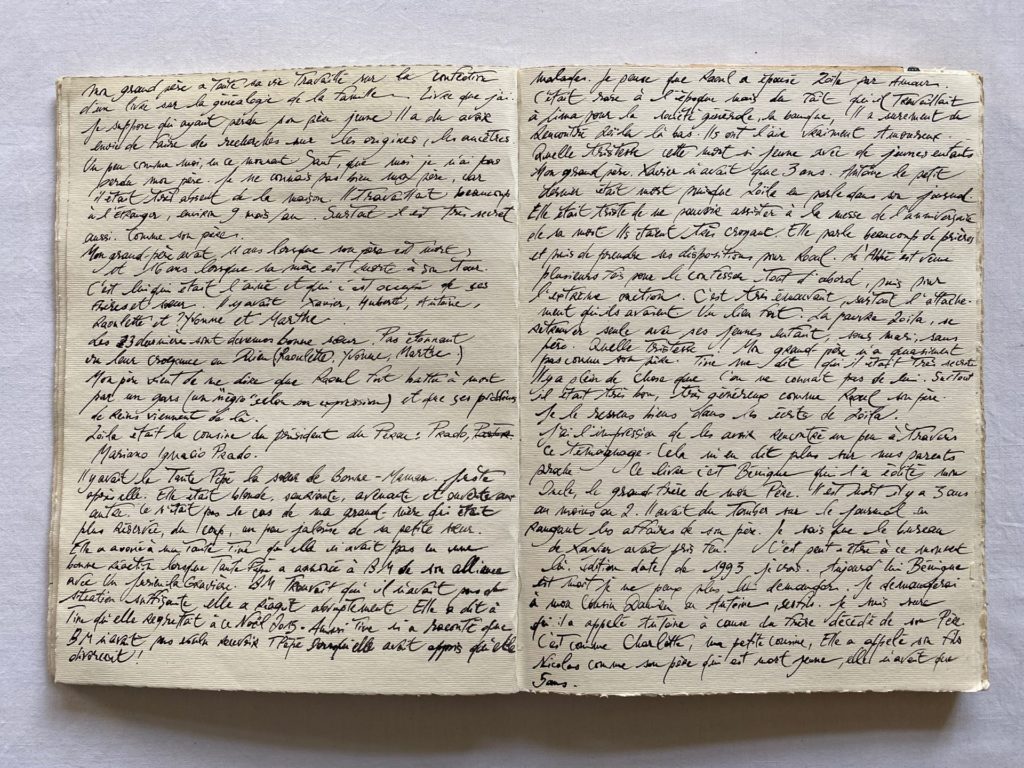 Mon grand père a toute sa vie travaillé sur la confection
d'un livre sur la généalogie de la famille. Livre que j'ai.
Je suppose qu'ayant perdu son père jeune Il a du avoir
envie de faire des recherches sur les origines, les ancêtres
Un peu comme moi, en ce moment Sauf, que moi je n'ai pas
perdu mon père. Je ne connais pas bien mon père, car
il était très absent de la maison. Il travaillait beaucoup
à l'étranger, environ 9 mois/an. Surtout il est très secret
aussi. Comme son père.
Mon grand-père avait 11 ans lorsque son père est mort,
et 16 ans lorsque sa mère est morte à son tour.
C'est lui qui était l'ainé et qui s'est occupé de ses
frères et sœur. Il y avait Xavier, Huberte, Antoine,
Raoulette et Yvonne et Marthe
Les 3 dernière sont devenus bonne sœur. Pas étonnant
vu leur croyance en Dieu (Raoulette, Yvonne, Marthe)
Mon père vient de me dire que Raoul fut battu à mort
par un gars (un négro "selon son expression) et que ses problèmes
de Reins viennent de là.
Zoila était la cousine du président du Pérou : Prado,
Mariano Ignacio Prado.
Il y avait la Tante Pépé la sœur de Bonne-Maman juste
après elle. Elle était blonde, souriante, avenante et ouverte aux
autres. Ce n'était pas le cas de ma grand mère qui était
plus réservée, du coup, un peu jalouse de sa petite sœur.
Elle a avoué à ma Tante Tine qu'elle n'avait pas eu une
bonne réaction lorsque Tante Pépé a annoncé à B.M de son alliance
avec un B.M Trouvait qu'il n'avait pas de
situation suffisante elle a réagit abruptement Elle a dit à
Tine qu'elle regrettait à ce Noël Aussi Tine m'a raconté que
B.M n'avait pas voulu recevoir TPépé lorsqu'elle avait appris qu'elle
divorçait !!
malades. Je pense que Raoul a épousé Zoila par Amour.
C'était rare à l'époque mais du fait qu'il travaillait
à Lima pour la société générale, la banque, Il a surement du
rencontré Zoila là bas. Ils ont l'air vraiment Amoureux.
Quelle tristesse cette mort si jeune avec de jeunes enfants
Mon grand père, Xavier n'avait que 3 ans. Antoine le petit
dernier était mort puisque Zoila en parle dans son journal
Elle était triste de ne pouvoir assister à la messe de l'anniversaire
de sa mort Ils étaient très croyant. Elle parle beaucoup de prières
et puis de prendre ses dispositions pour Raoul. L'Abbé est venu
plusieurs fois pour le confesser tout d'abord, puis pour
l'extreme onction. C'est très émouvant, surtout l'attache-
ment qu'ils avaient Un lien fort. La pauvre Zoila, se
retrouver seule avec ses jeunes enfant, sans mari, sans
père. Quelle tristesse ! Mon grand père n'a quasiment
pas connu son père. Tine me dit qu'il était très secret
Il y a plein de chose que l'on ne connait pas de lui. Surtout
il était très bon, très généreux comme Raoul son père.
Je le ressens bien dans les écrits de Zoila.
J'ai l'impression de les avoir rencontré un peu à travers
ce témoignage. Cela m'en dit plus sur mes parents
proche. Ce livre c'est Bénigne qui l'a édité mon
Oncle, le grand frère de mon Père. Il est mort il y a 3 ans
au moins ou 2. Il avait du tomber sur le journal en
rangeant les affaires de son père. Je sais que le bureau
de Xavier avait pris feu. C'est peut être à ce moment
là. edition date du 1993 je crois. Aujourd'hui Bénigne
est mort je ne peux plus lui demander. Je demanderai
à mon Cousin Damien ou Antoine, Je suis sure
qu'il a appelé Antoine à cause du frère décédé de son Père
C'est comme Charlotte, ma petite cousine, Elle a appelé son fils
Nicolas comme son père qui est mort jeune, elle n'avait que
5 ans.